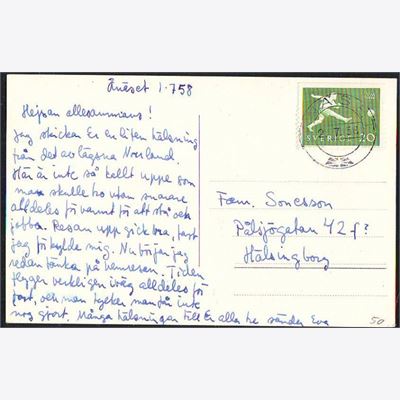 Hejsan allesammans!
Jag skickar Er en liten hälsning
från det avlägsna Norrland.
Här är inte så kallt uppe som
man skulle tro utan snarare
alldeles för varmt för att stå och
jobba. Resan upp gick bra, fast
jag förkylde mig. Nu börjar jag
redan tänka på hemresan. Tiden
flyger verkligen iväg alldeles för
fort, och man tycker man får inte
nog gjort. Många hälsningar till Er alla he sänder Eva
SVERIGE 20
Fam. Sonesson
Pålsjögatan 42 f?
Hälsingborg
50